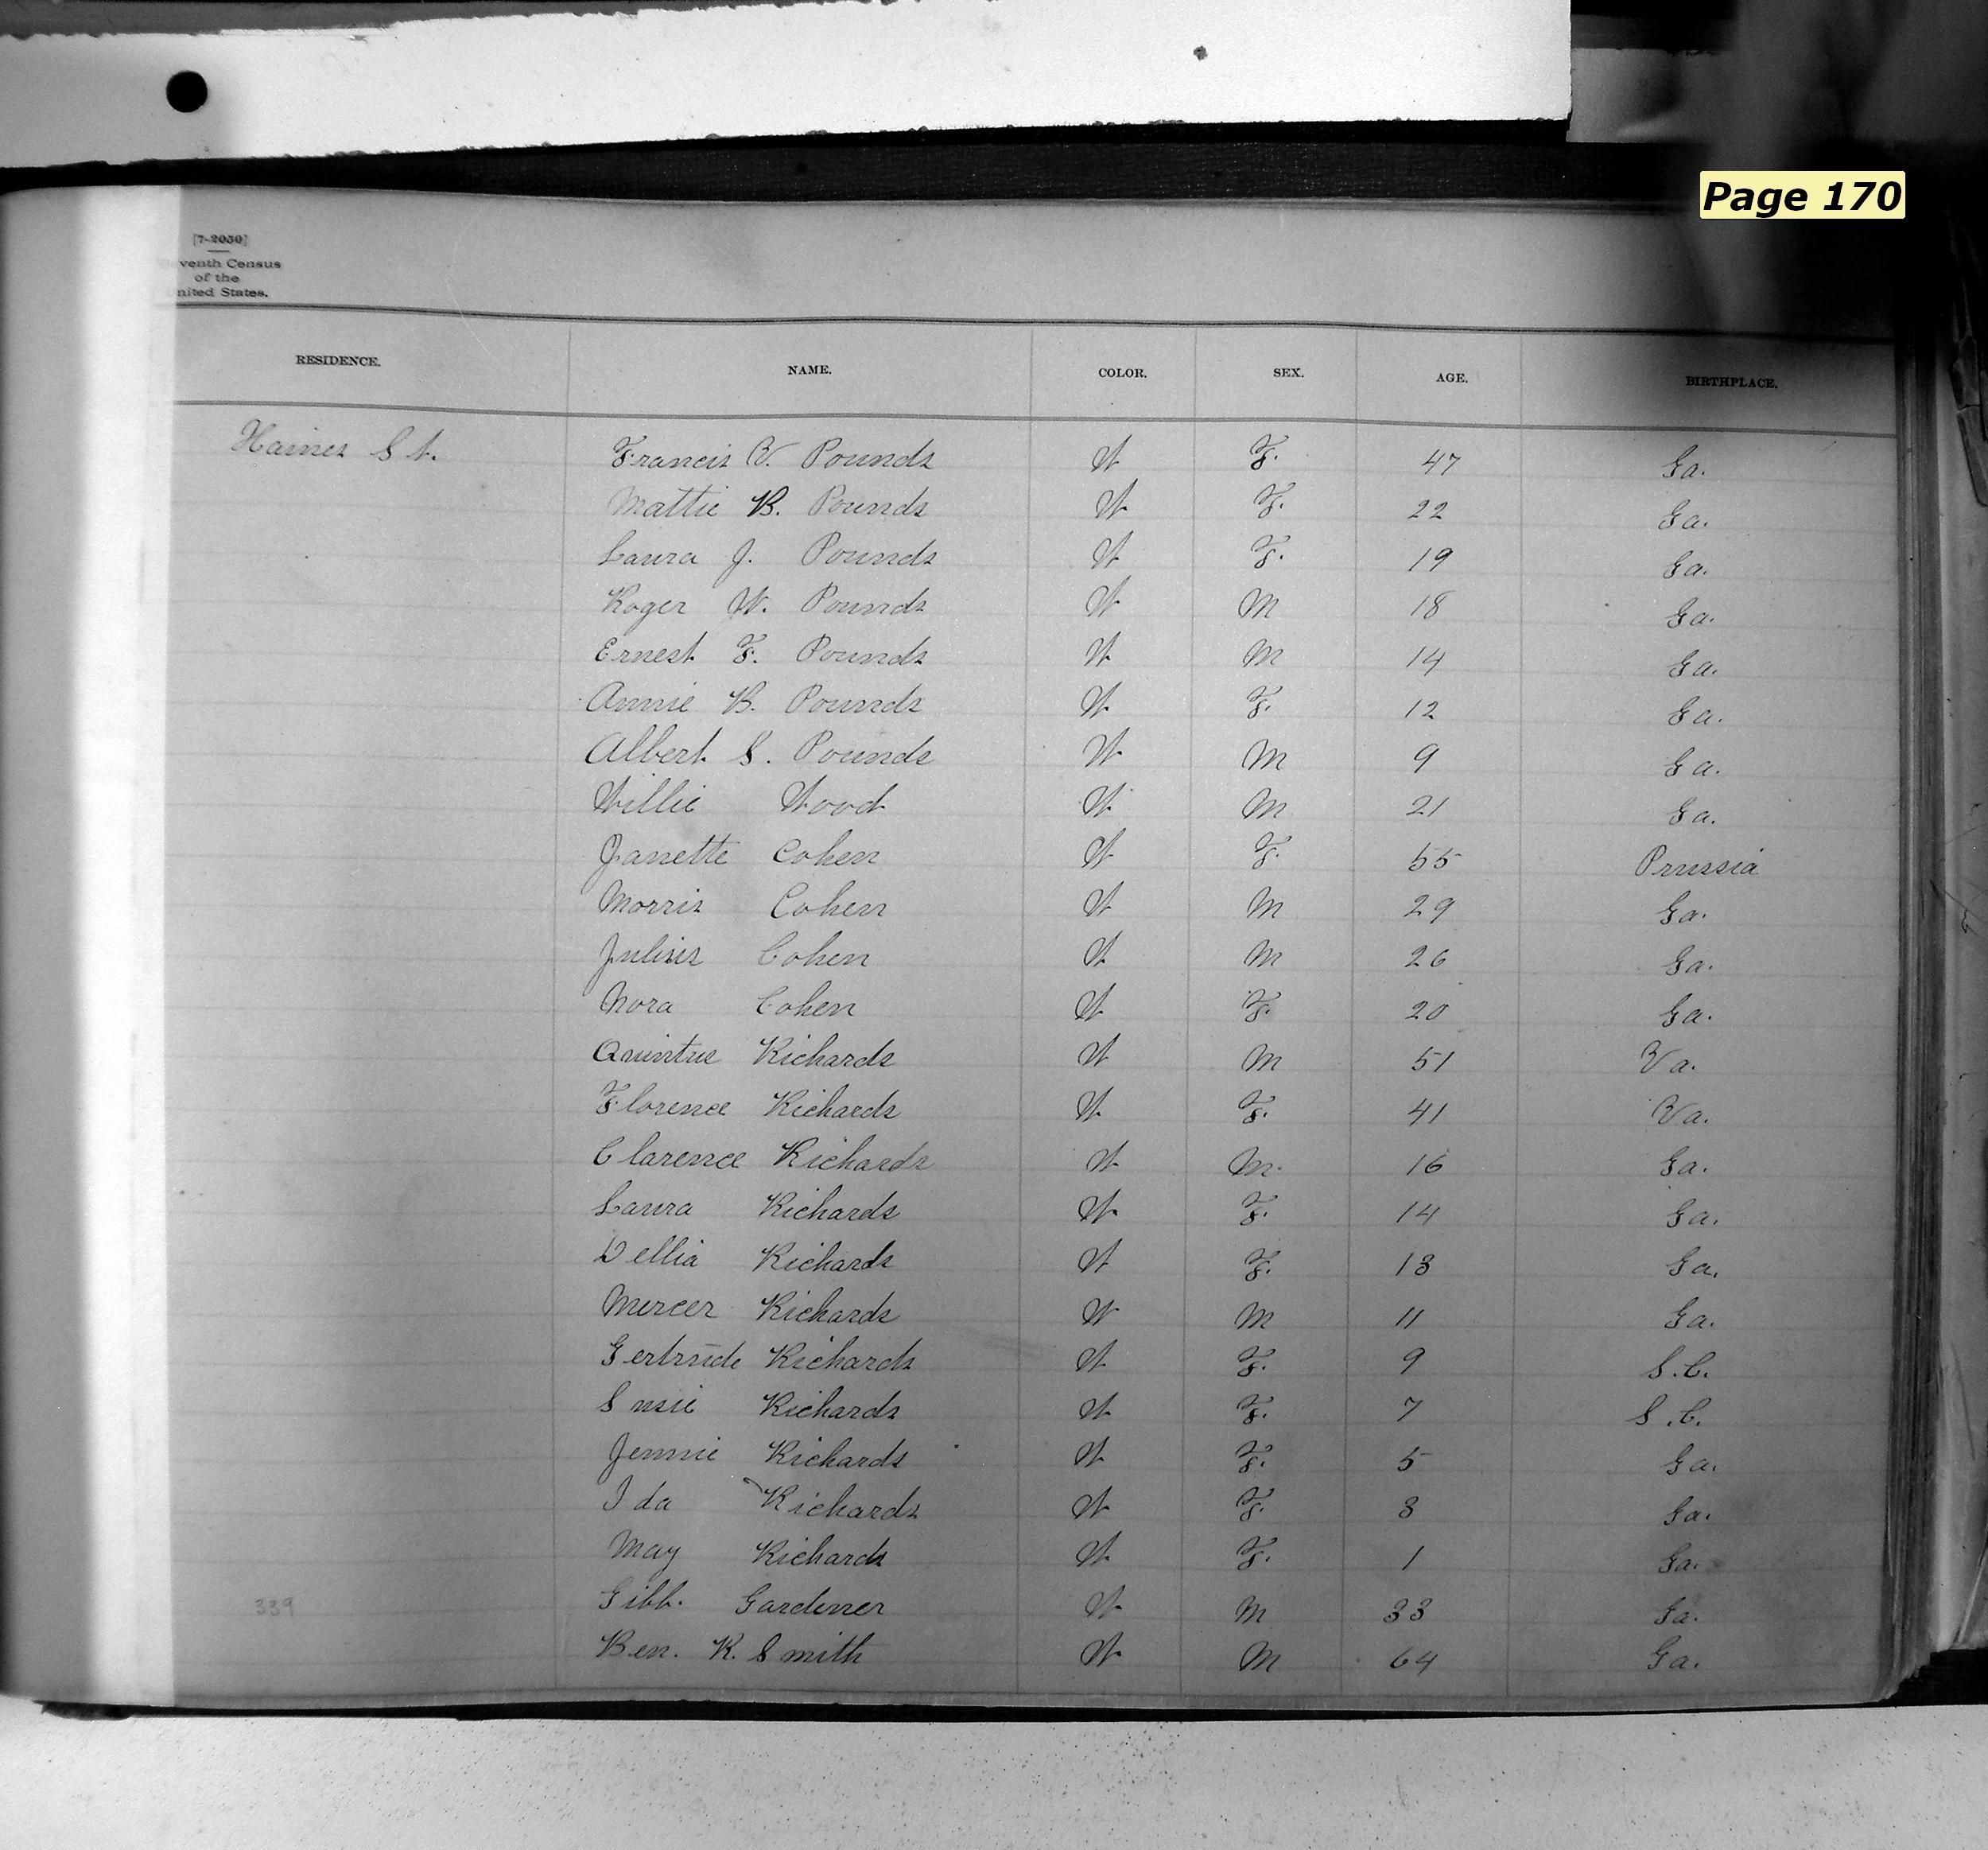 Page 170
[7-2050]
venth Census
of the
nited States.
RESIDENCE. NAME. COLOR. SEX. AGE. BIRTHPLACE.
Haines St. Francis V. Pounds W F. 47 Ga.
Mattie B. Pounds W F. 22 Ga.
Laura J. Pounds W F. 19 Ga.
Roger W. Pounds W M 18 Ga.
Ernest F. Pounds W M 14 Ga.
Annie B. Pounds W F. 12 Ga.
Albert S. Pounds W M 9 Ga.
Willie Wood W M 21 Ga.
Janette Cohen W F. 55 Prussia
Morris Cohen W M 29 Ga.
Julius Cohen W M 26 Ga.
Nora Cohen W F. 20 Ga.
Quintus Richards W M 51 Va.
Florence Richards W F. 41 Va.
Clarence Richards W M. 16 Ga.
Laura Richards W F. 14 Ga.
Dellia Richards W F. 13 Ga.
Mercer Richards W M 11 Ga.
Gertrude Richards W F. 9 S.C.
Susie Richards W F. 7 S.C.
Jennie Richards W F. 5 Ga.
Ida Richards W F. 3 Ga.
May Richards W F. 1 Ga.
339 Gibb. Gardener W M 33 Ga.
Ben. R. Smith W M 64 Ga.